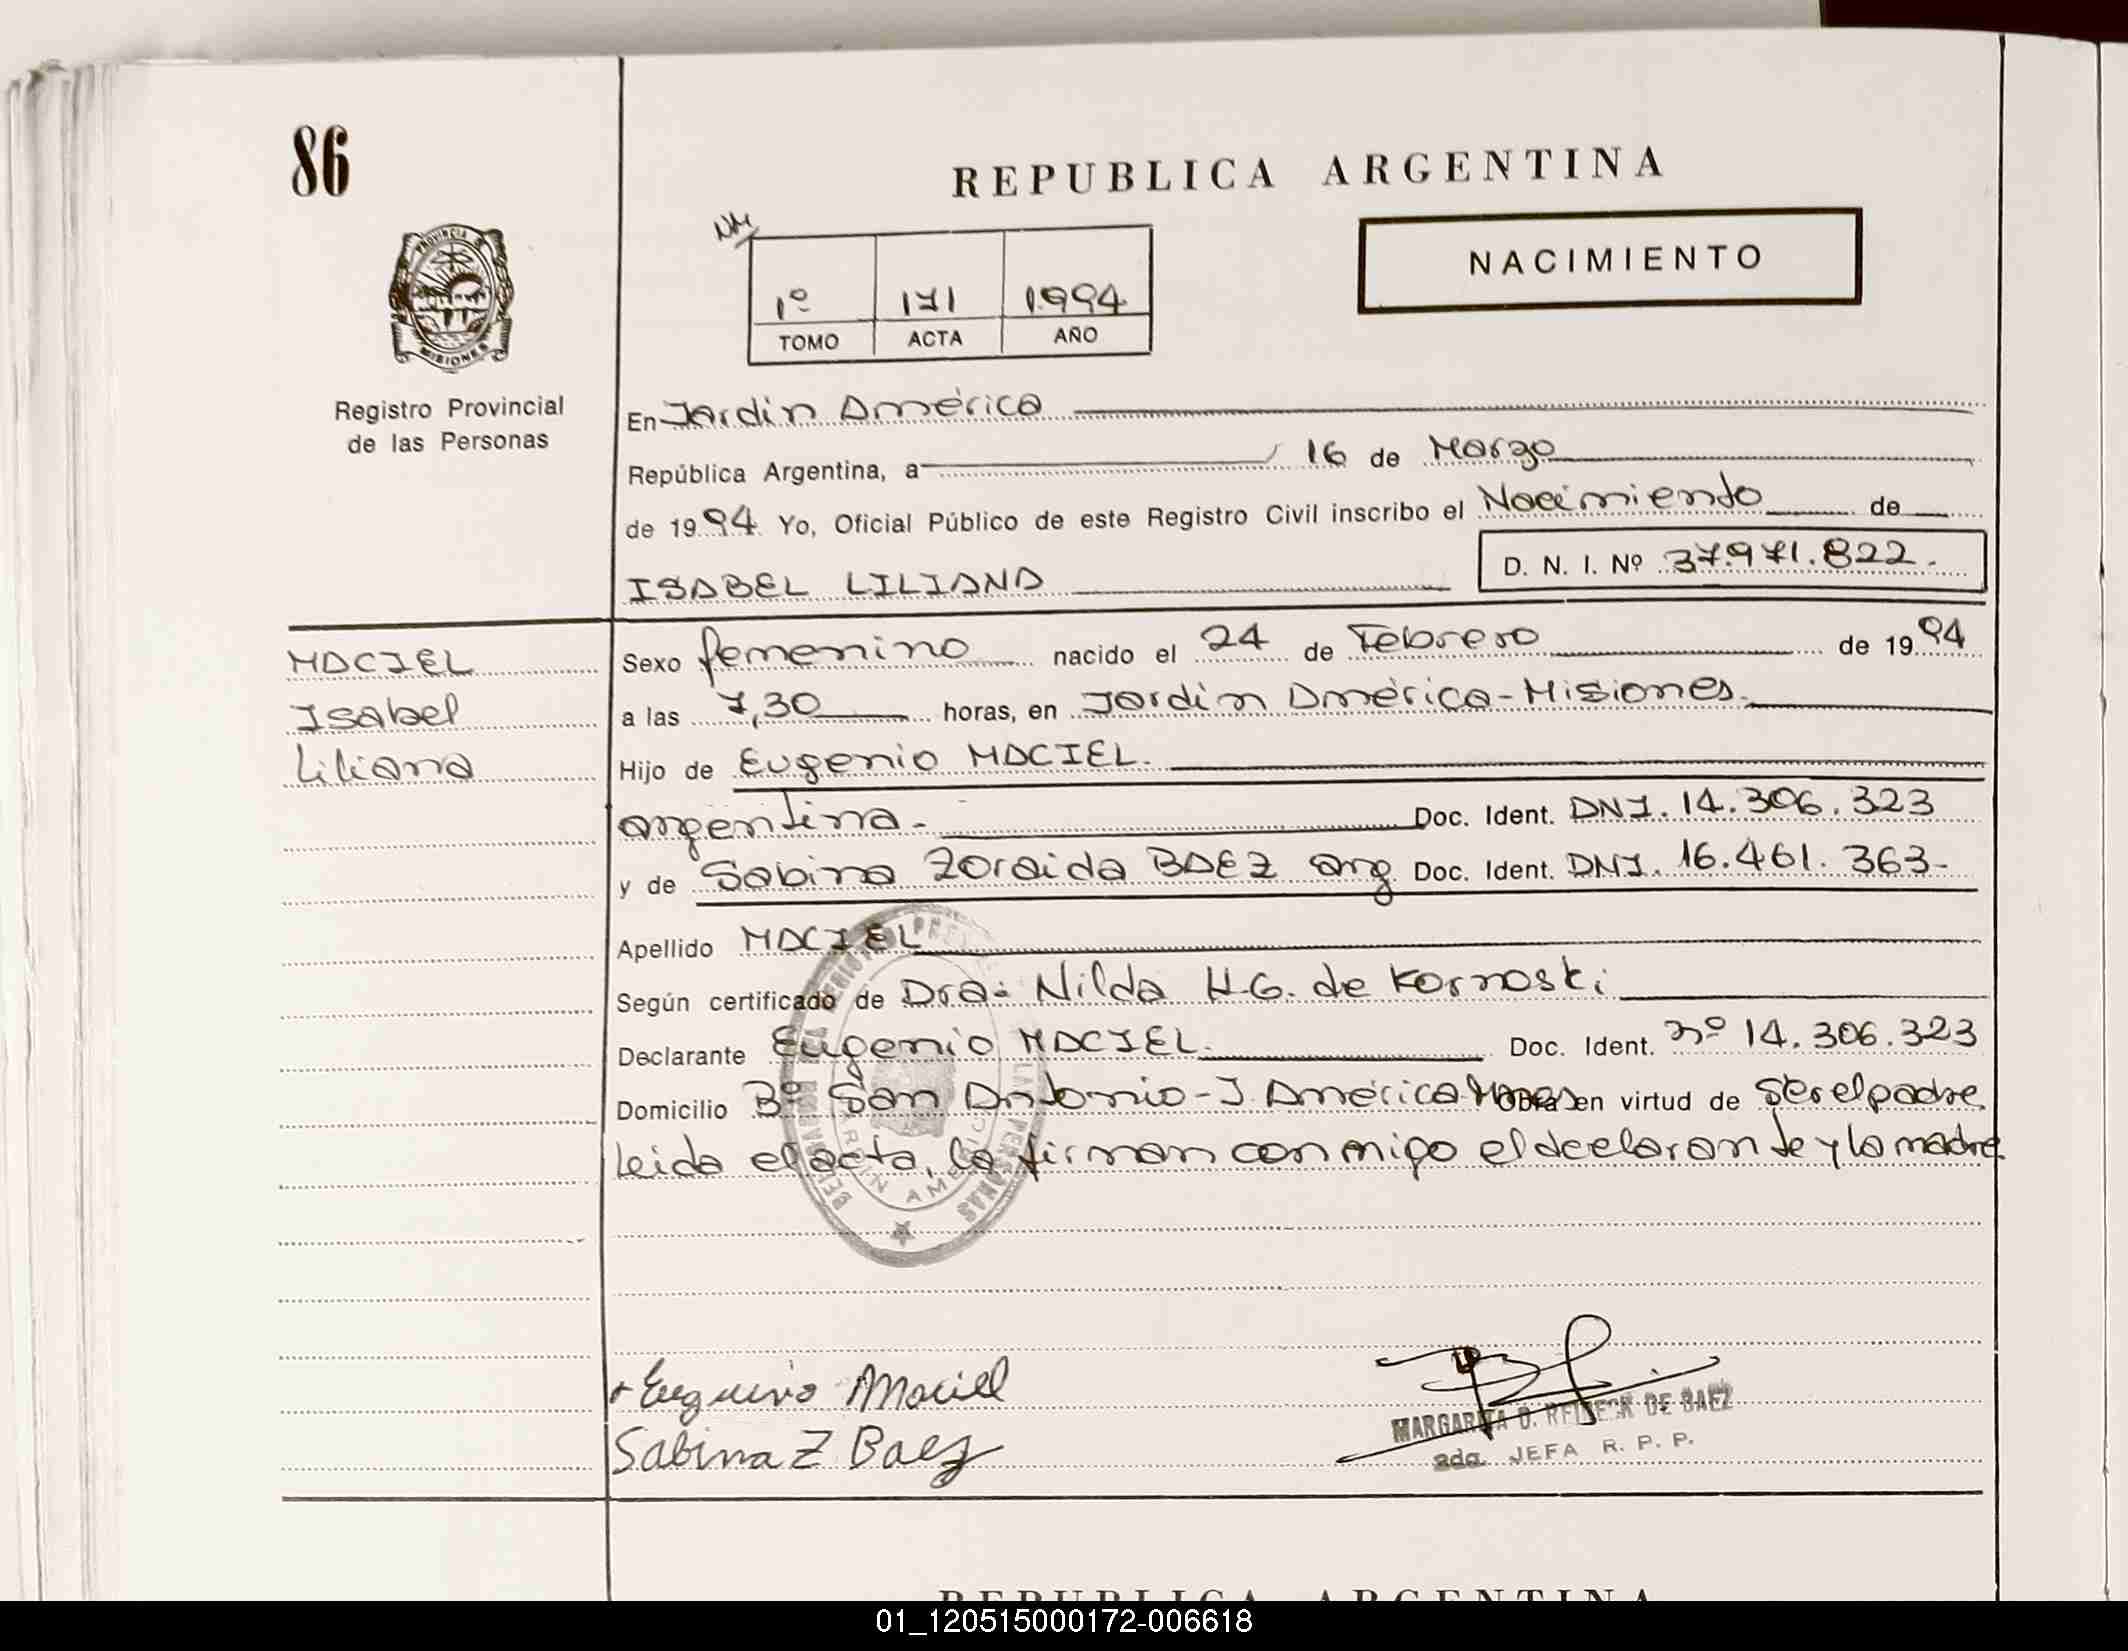 86
REPUBLICA ARGENTINA
NM
NACIMIENTO
1º 171 1994
TOMO ACTA AÑO
PROVINCIA DE MISIONES
Registro Provincial
de las Personas
En Jardín América
República Argentina, a 16 de Marzo
de 1994 Yo, Oficial Público de este Registro Civil inscribo el Nacimiento de
D. N. I. Nº 37.971.822.-
ISABEL LILIANA
MACIEL
Isabel
Liliana
Sexo femenino nacido el 24 de Febrero de 1994
a las 7,30 horas, en Jardín América-Misiones.
Hijo de Eugenio MACIEL.
argentina.- Doc. Ident. DNI. 14.306.323
y de Sabina Zoraida BAEZ arg Doc. Ident. DNI. 16.461.363-
Apellido MACIEL
Según certificado de Dra. Nilda H.G. de Kornoski
Declarante Eugenio MACIEL. Doc. Ident. nº 14.306.323
Domicilio Bº San Antonio-J. América Mnes Obra en virtud de ser el padre
Leida el acta, la firman conmigo el declarante y la madre.
JARDIN AMERICA
Eugenio Maciel
Sabina Z Baez
MARGARITA D. DE BAEZ
2da. JEFA R. P. P.
REPUBLICA ARGENTINA
01_120515000172-006618